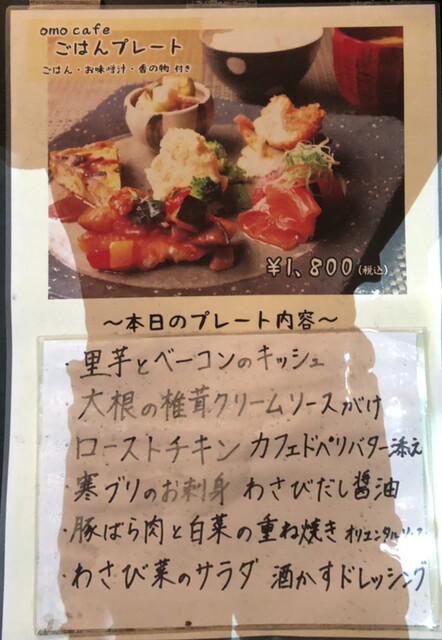 omo cafe
ごはんプレート
ごはん・お味噌汁・香の物 付き
¥1,800(税込)
～本日のプレート内容～
・里芋とベーコンのキッシュ
大根の椎茸クリームソースがけ
ローストチキン カフェドパリバター添え
・寒ブリのお刺身 わさびだし醤油
・豚ばら肉と白菜の重ね焼き オリエンタルソース
・わさび菜のサラダ 酒かすドレッシング